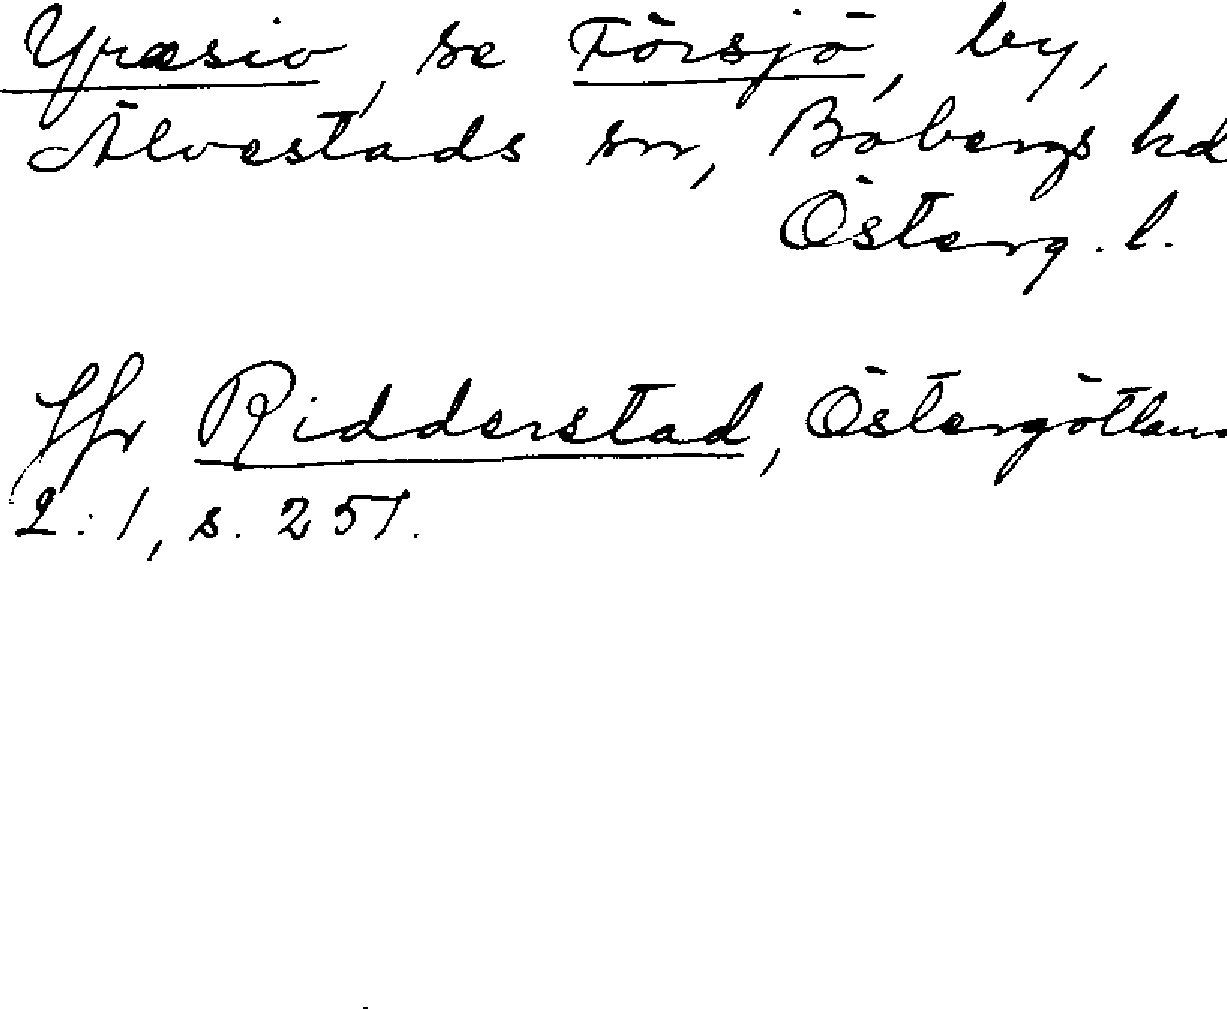 Yræsio, se Försjö, by,
Älvestads sn, Bobergs hd
Österg. l.
Jfr Ridderstad, Östergötland
2:1, s. 257.